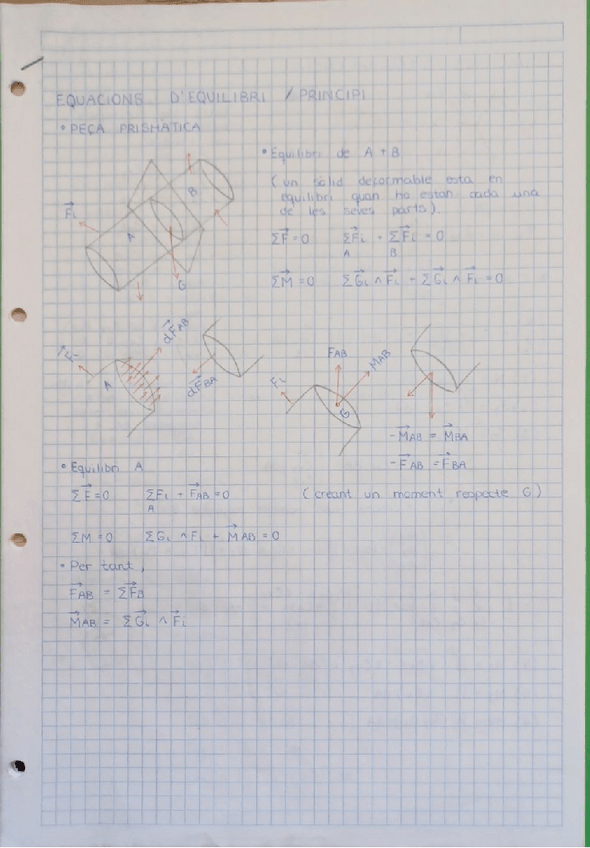 EQUACIONS D'EQUILIBRI / PRINCIPI
• PEÇA PRISMÀTICA
• Equilibri de A + B
(un sòlid deformable esta en
equilibri quan ho estan cada una
de les seves parts).
F⃗i
A
B
G
ΣF⃗=0 ΣF⃗i + ΣF⃗i = 0
A B
ΣM⃗=0 ΣG⃗i ∧ F⃗i + ΣG⃗i ∧ F⃗i = 0
F⃗i
A
dF⃗AB
dF⃗BA
Fi
FAB
MAB
G
-M⃗AB = M⃗BA
-F⃗AB = F⃗BA
• Equilibri A
ΣF⃗=0 ΣFi + F⃗AB=0 (creant un moment respecte G)
A
ΣM=0 ΣGi ∧ Fi + M⃗AB = 0
• Per tant,
F⃗AB = ΣF⃗B
M⃗AB = ΣG⃗i ∧ F⃗i